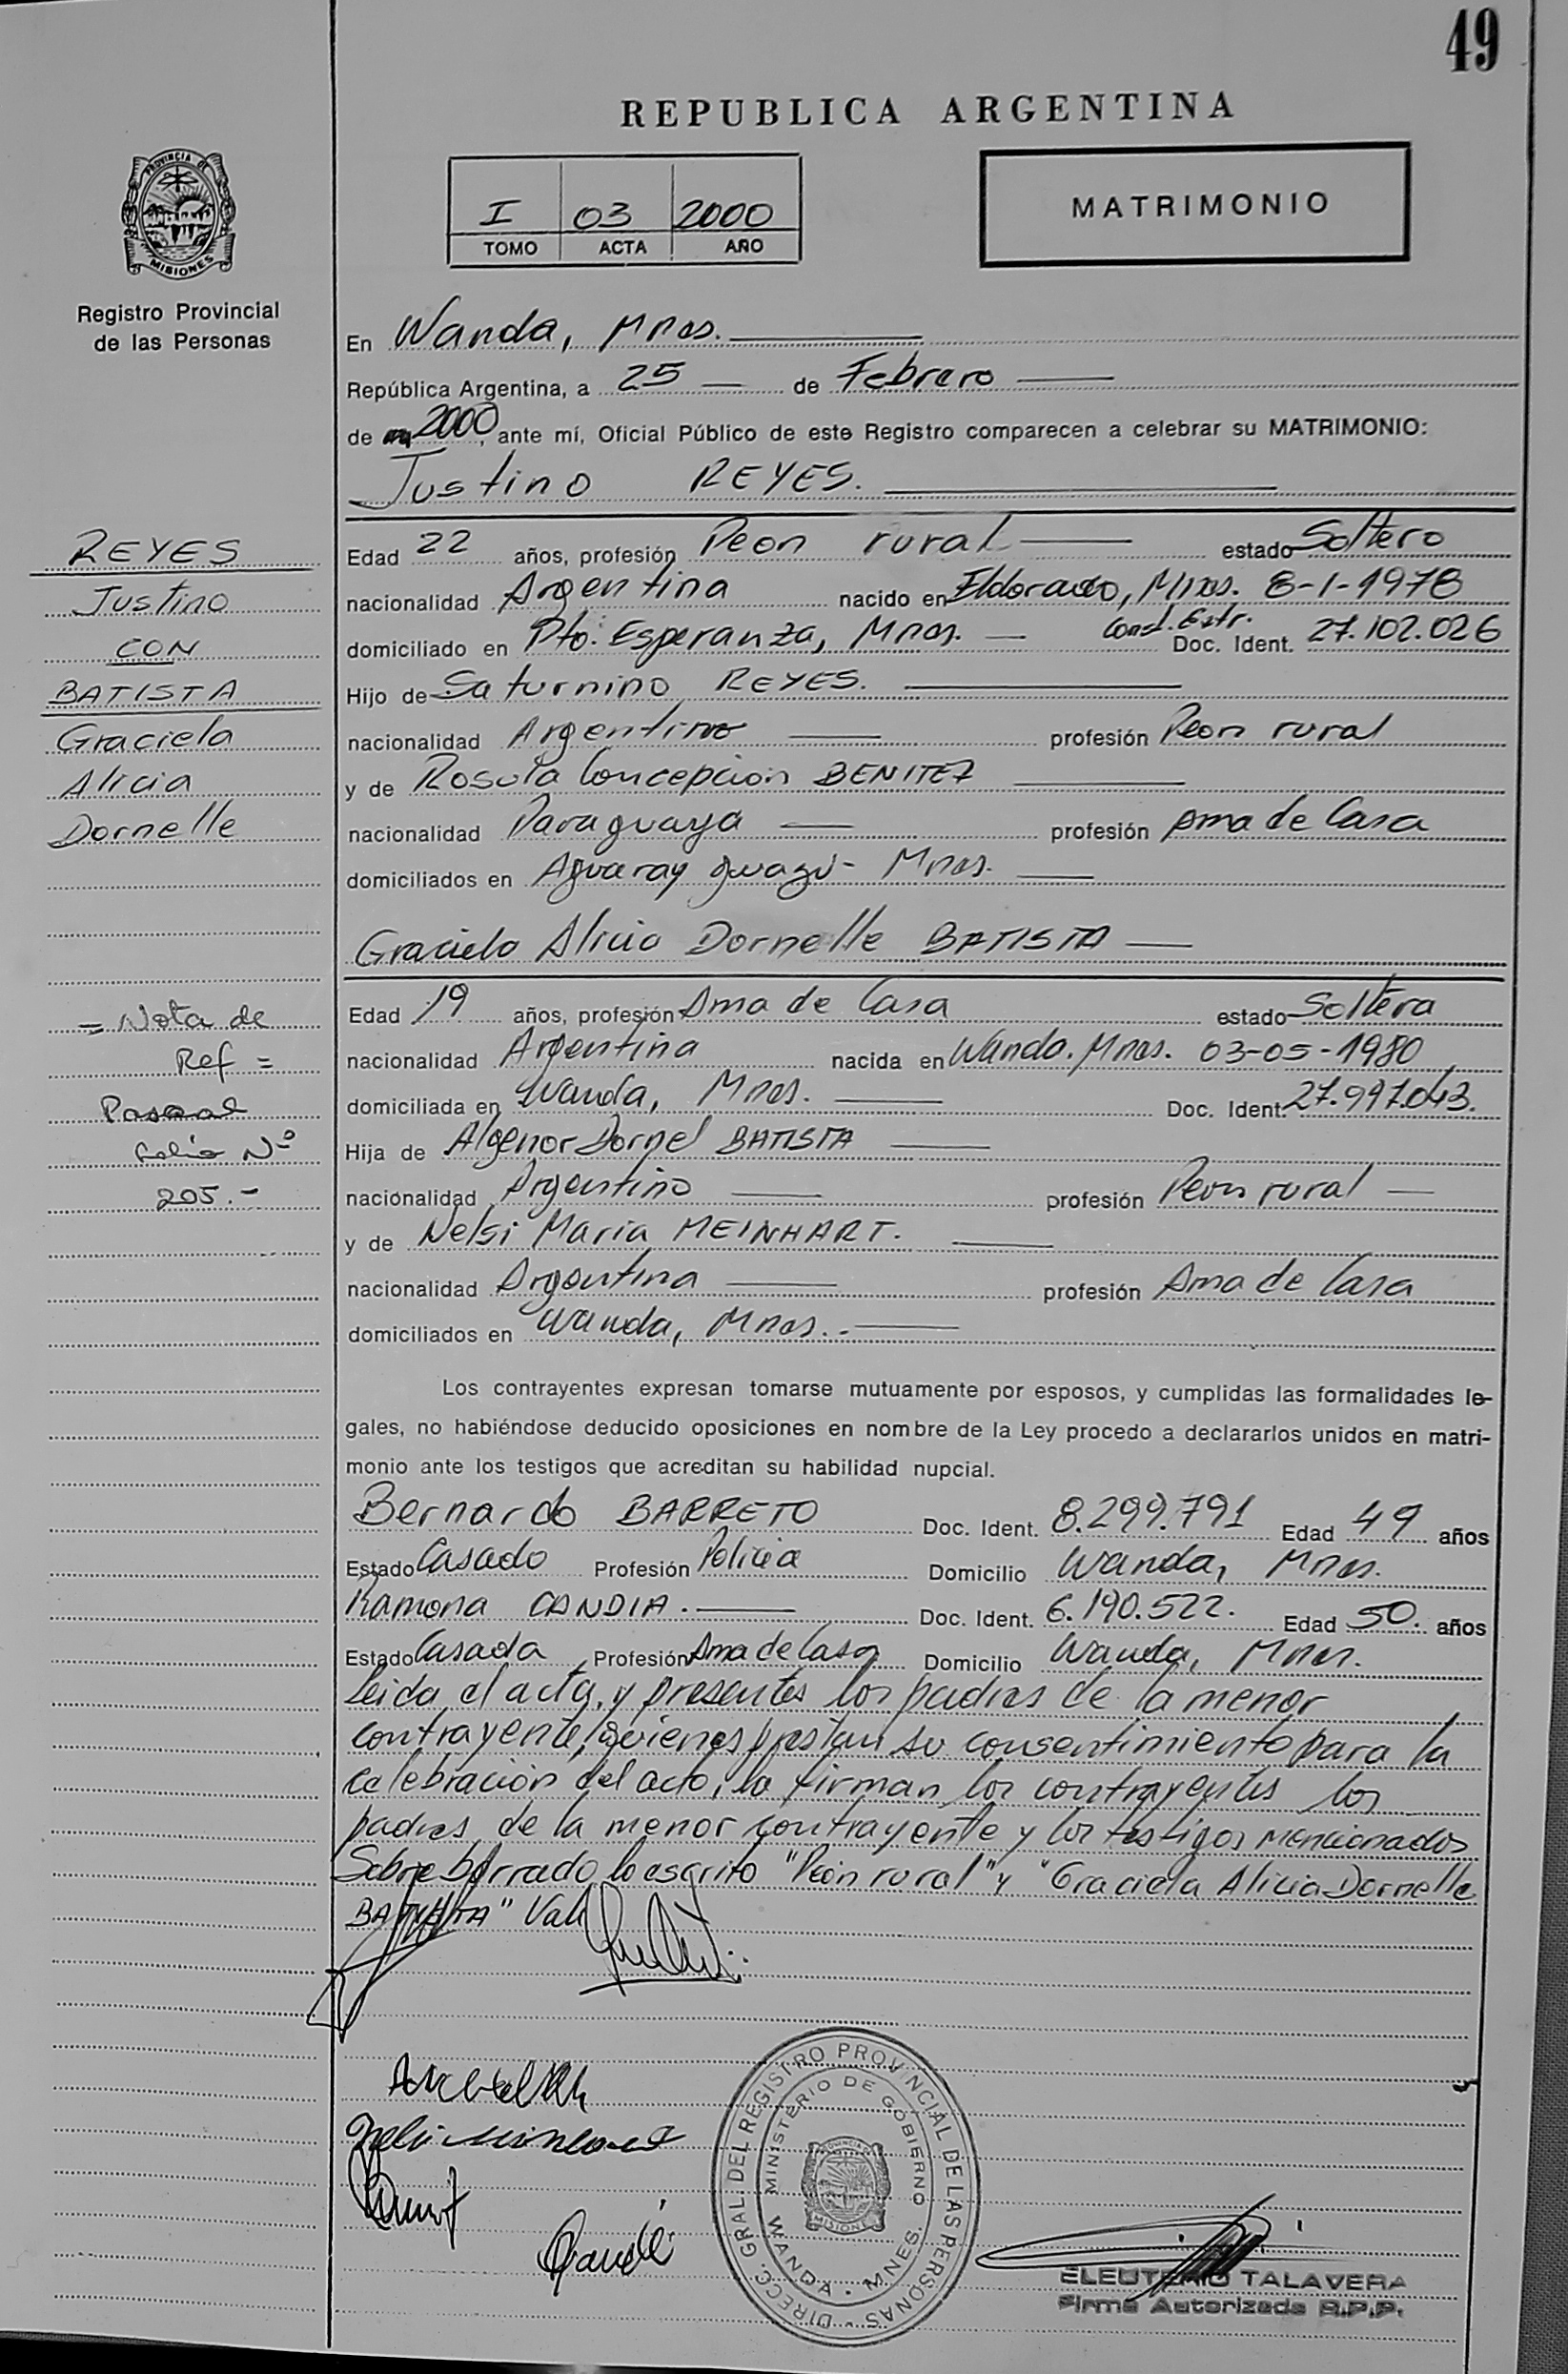 49
REPUBLICA ARGENTINA
PROVINCIA DE
MISIONES
Registro Provincial
de las Personas
I 03 2000
TOMO ACTA AÑO
MATRIMONIO
En Wanda, Mnes.
República Argentina, a 25 de Febrero
de 2000, ante mí, Oficial Público de este Registro comparecen a celebrar su MATRIMONIO:
Justino REYES.
REYES
Justino
CON
BATISTA
Graciela
Alicia
Dornelle
Edad 22 años, profesión Peon rural estado Soltero
nacionalidad Argentina nacido en Eldorado, Mnes. 8-1-1978
domiciliado en Pto. Esperanza, Mnes. Const. Extr. Doc. Ident. 27.102.026
Hijo de Saturnino REYES.
nacionalidad Argentino profesión Peon rural
y de Rosula Concepcion BENITEZ
nacionalidad Paraguaya profesión Ama de Casa
domiciliados en Aguaray guazú - Mnes.
Graciela Alicia Dornelle BATISTA
= Nota de
Ref =
folio Nº
205.-
Edad 19 años, profesión Ama de Casa estado Soltera
nacionalidad Argentina nacida en Wanda. Mnes. 03-05-1980
domiciliada en Wanda, Mnes. Doc. Ident. 27.997.043.
Hija de Algenor Dornel BATISTA
nacionalidad Argentino profesión Peon rural
y de Nelsi Maria MEINHART.
nacionalidad Argentina profesión Ama de Casa
domiciliados en Wanda, Mnes.-
Los contrayentes expresan tomarse mutuamente por esposos, y cumplidas las formalidades le-
gales, no habiéndose deducido oposiciones en nombre de la Ley procedo a declararlos unidos en matri-
monio ante los testigos que acreditan su habilidad nupcial.
Bernardo BARRETO Doc. Ident. 8.299.791 Edad 49 años
Estado Casado Profesión Policia Domicilio Wanda, Mnes.
Ramona CANDIA. Doc. Ident. 6.190.522. Edad 50. años
Estado Casada Profesión Ama de Casa Domicilio Wanda, Mnes.
Leida el acta, y presentes los padres de la menor
contrayente, quienes prestan su consentimiento para la
celebración del acto, la firman los contrayentes los
padres de la menor contrayente y los testigos mencionados
Sobre borrado lo escrito "Peón rural" y "Graciela Alicia Dornelle
BATISTA" Vale
DIRECC. GRAL. DEL REGISTRO PROVINCIAL DE LAS PERSONAS
MINISTERIO DE GOBIERNO
WANDA - MNES.
PROVINCIA DE
MISIONES
ELEUTERIO TALAVERA
Firma Autorizada R.P.P.